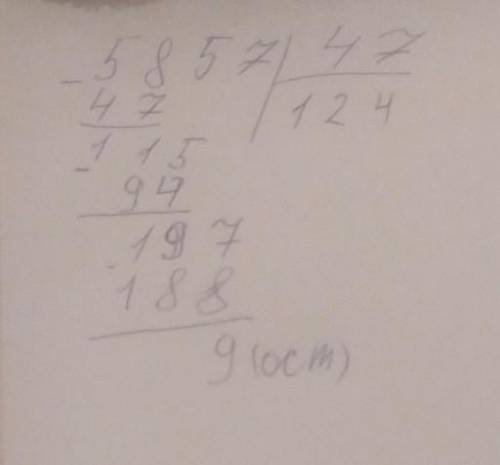 - 5857 | 47
47 124
- 115
94
- 197
188
9 (ост)